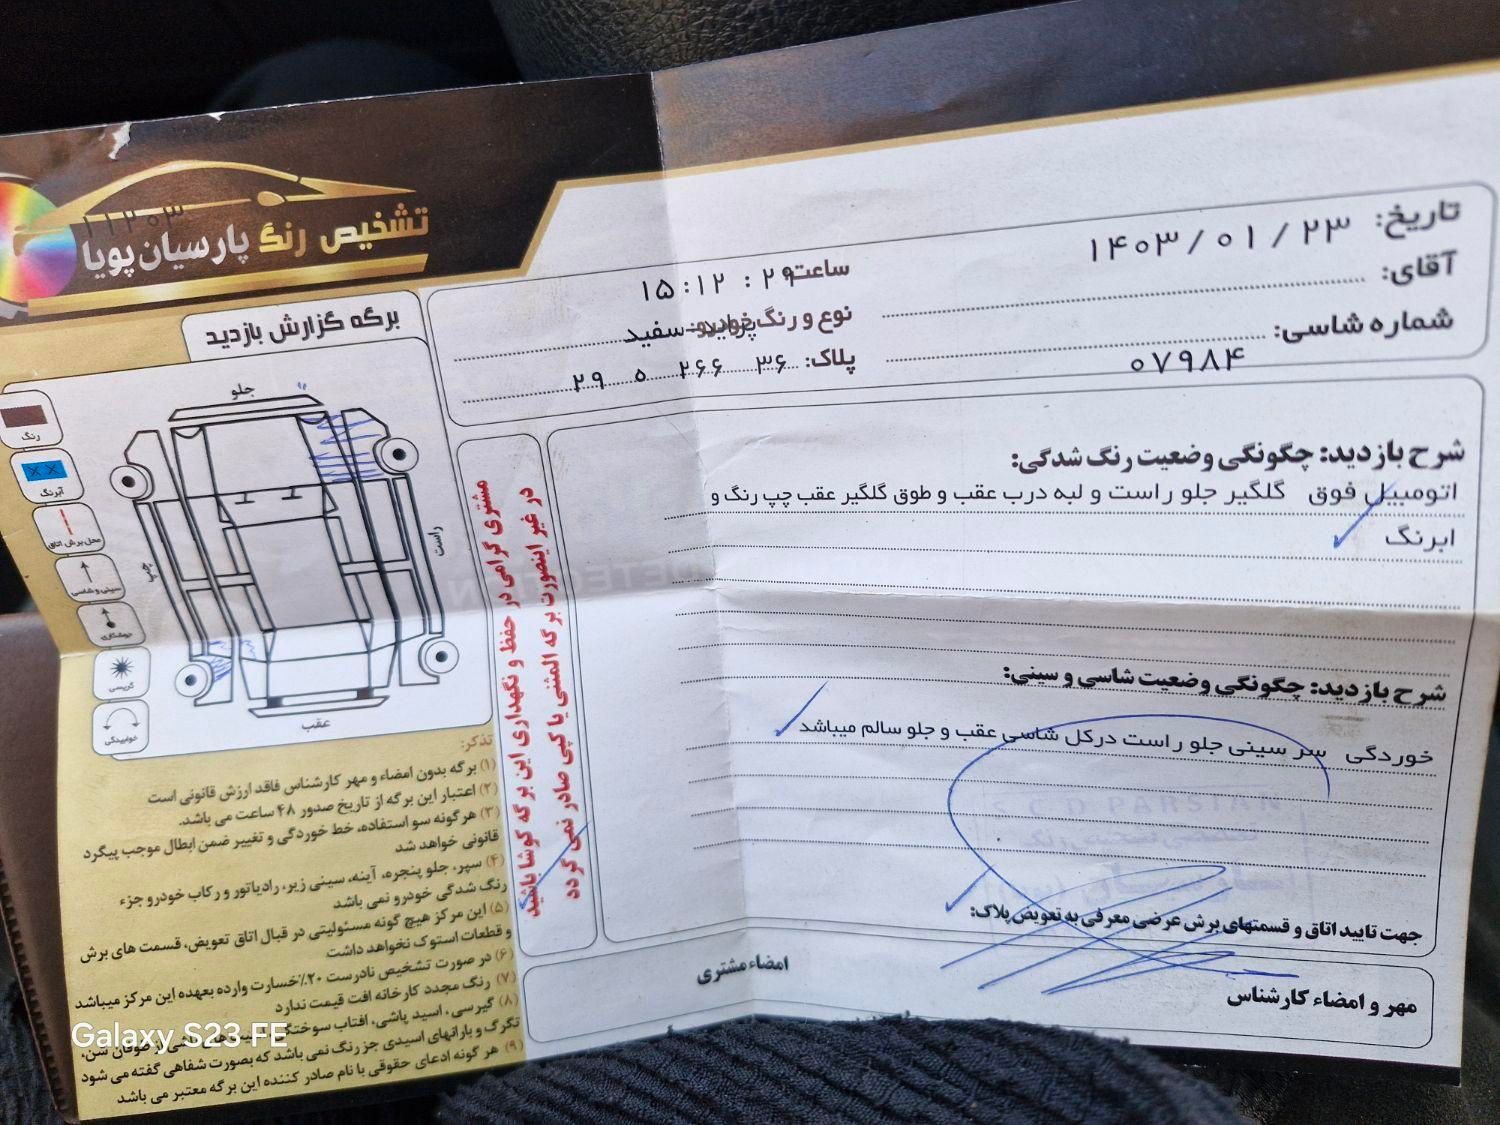 تشخیص رنگ پارسیان پویا
۱۱۲۰۳
تاریخ: ۱۴۰۳/۰۱/۲۳
ساعت: ۱۵:۱۲ : ۲۹
آقای:
نوع و رنگ خودرو: پراید-سفید
شماره شاسی: ۰۷۹۸۴
پلاک: ۳۶ ۲۶۶ ۵ ۲۹
برگه گزارش بازدید
جلو
راست
چپ
عقب
رنگ
آبرنگ
محل برش اتاق
سینی و شاسی
جوشکاری
گریسی
خوابیدگی
مشتری گرامی در حفظ و نگهداری این برگه کوشا باشید
در غیر اینصورت برگه المثنی یا کپی صادر نمی گردد
شرح بازدید: چگونگی وضعیت رنگ شدگی:
اتومبیل فوق گلگیر جلو راست و لبه درب عقب و طوق گلگیر عقب چپ رنگ و
ابرنگ
شرح بازدید: چگونگی وضعیت شاسی و سینی:
خوردگی سر سینی جلو راست درکل شاسی عقب و جلو سالم میباشد
جهت تایید اتاق و قسمتهای برش عرضی معرفی به تعویض پلاک:
مهر و امضاء کارشناس
امضاء مشتری
تذکر:
۱) برگه بدون امضاء و مهر کارشناس فاقد ارزش قانونی است
۲) اعتبار این برگه از تاریخ صدور ۴۸ ساعت می باشد.
۳) هر گونه سو استفاده، خط خوردگی و تغییر ضمن ابطال موجب پیگرد
قانونی خواهد شد
۴) سپر، جلو پنجره، آینه، سینی زیر، رادیاتور و رکاب خودرو جزء
رنگ شدگی خودرو نمی باشد
۵) این مرکز هیچ گونه مسئولیتی در قبال اتاق تعویض، قسمت های برش
و قطعات استوک نخواهد داشت
۶) در صورت تشخیص نادرست ۲۰٪ خسارت وارده بعهده این مرکز میباشد
۷) رنگ مجدد کارخانه افت قیمت ندارد
۸) گیرسی، اسید پاشی، افتاب سوختگی از طوفان شن،
تگرگ و بارانهای اسیدی جز رنگ نمی باشد که بصورت شفاهی گفته می شود
۹) هر گونه ادعای حقوقی با نام صادر کننده این برگه معتبر می باشد
Galaxy S23 FE